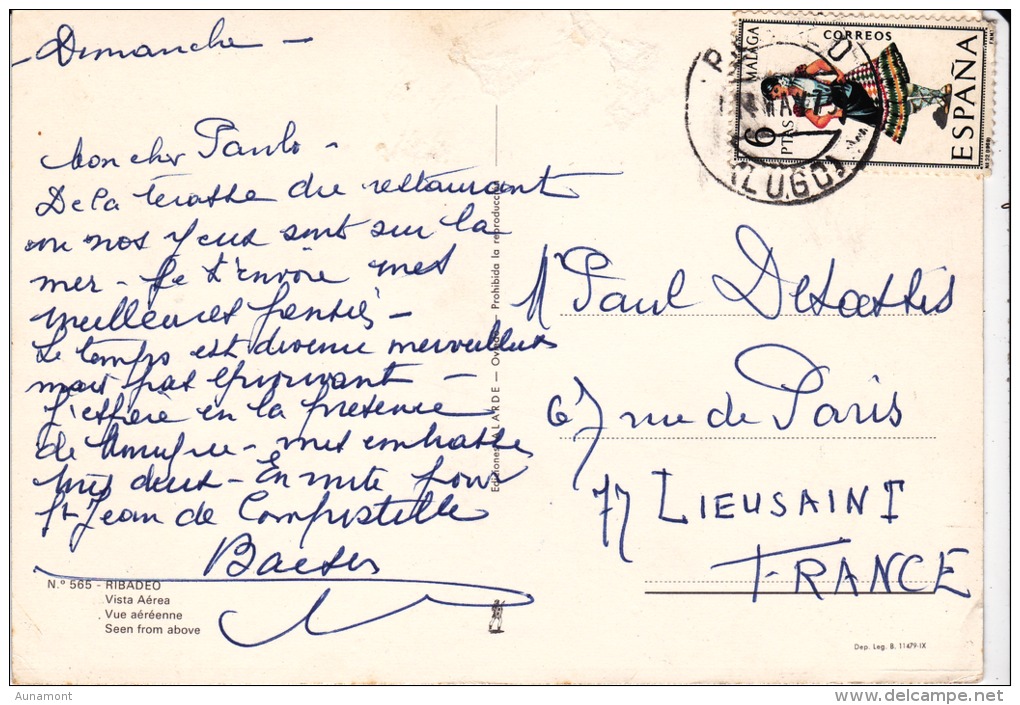 - Dimanche -
Mon cher Paulo -
De la terasse du restaurant
ou nos yeux sont sur la
mer - Je t'envoie mes
meilleures pensées -
Le temps est devenu merveilleux
mais pas
J'espère en la présence
de - mes embrasse
tous deux - En route pour
St Jean de Compostelle
N.º 565 - RIBADEO
Vista Aérea
Vue aéréenne
Seen from above
Ediciones ALARDE - Oviedo - Prohibida la reproducción
CORREOS
MALAGA
6 PTAS
ESPAÑA
(LUGO)
Mr Paul
67 rue de Paris
77 LIEUSAINT
FRANCE
Dep. Leg. B. 11479-IX
Aunamont
www.delcampe.net